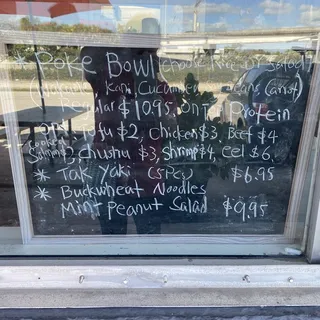 * Poke Bowl
Kani, Cucumber
Regular $10.95 Protein
Tofu $2, Chicken $3, Beef $4
Salmon $3, chashu $3, Shrimp $4, eel $6
* Takoyaki (5pcs) $6.95
* Buckwheat Noodles
Mint Peanut Salad $9.95